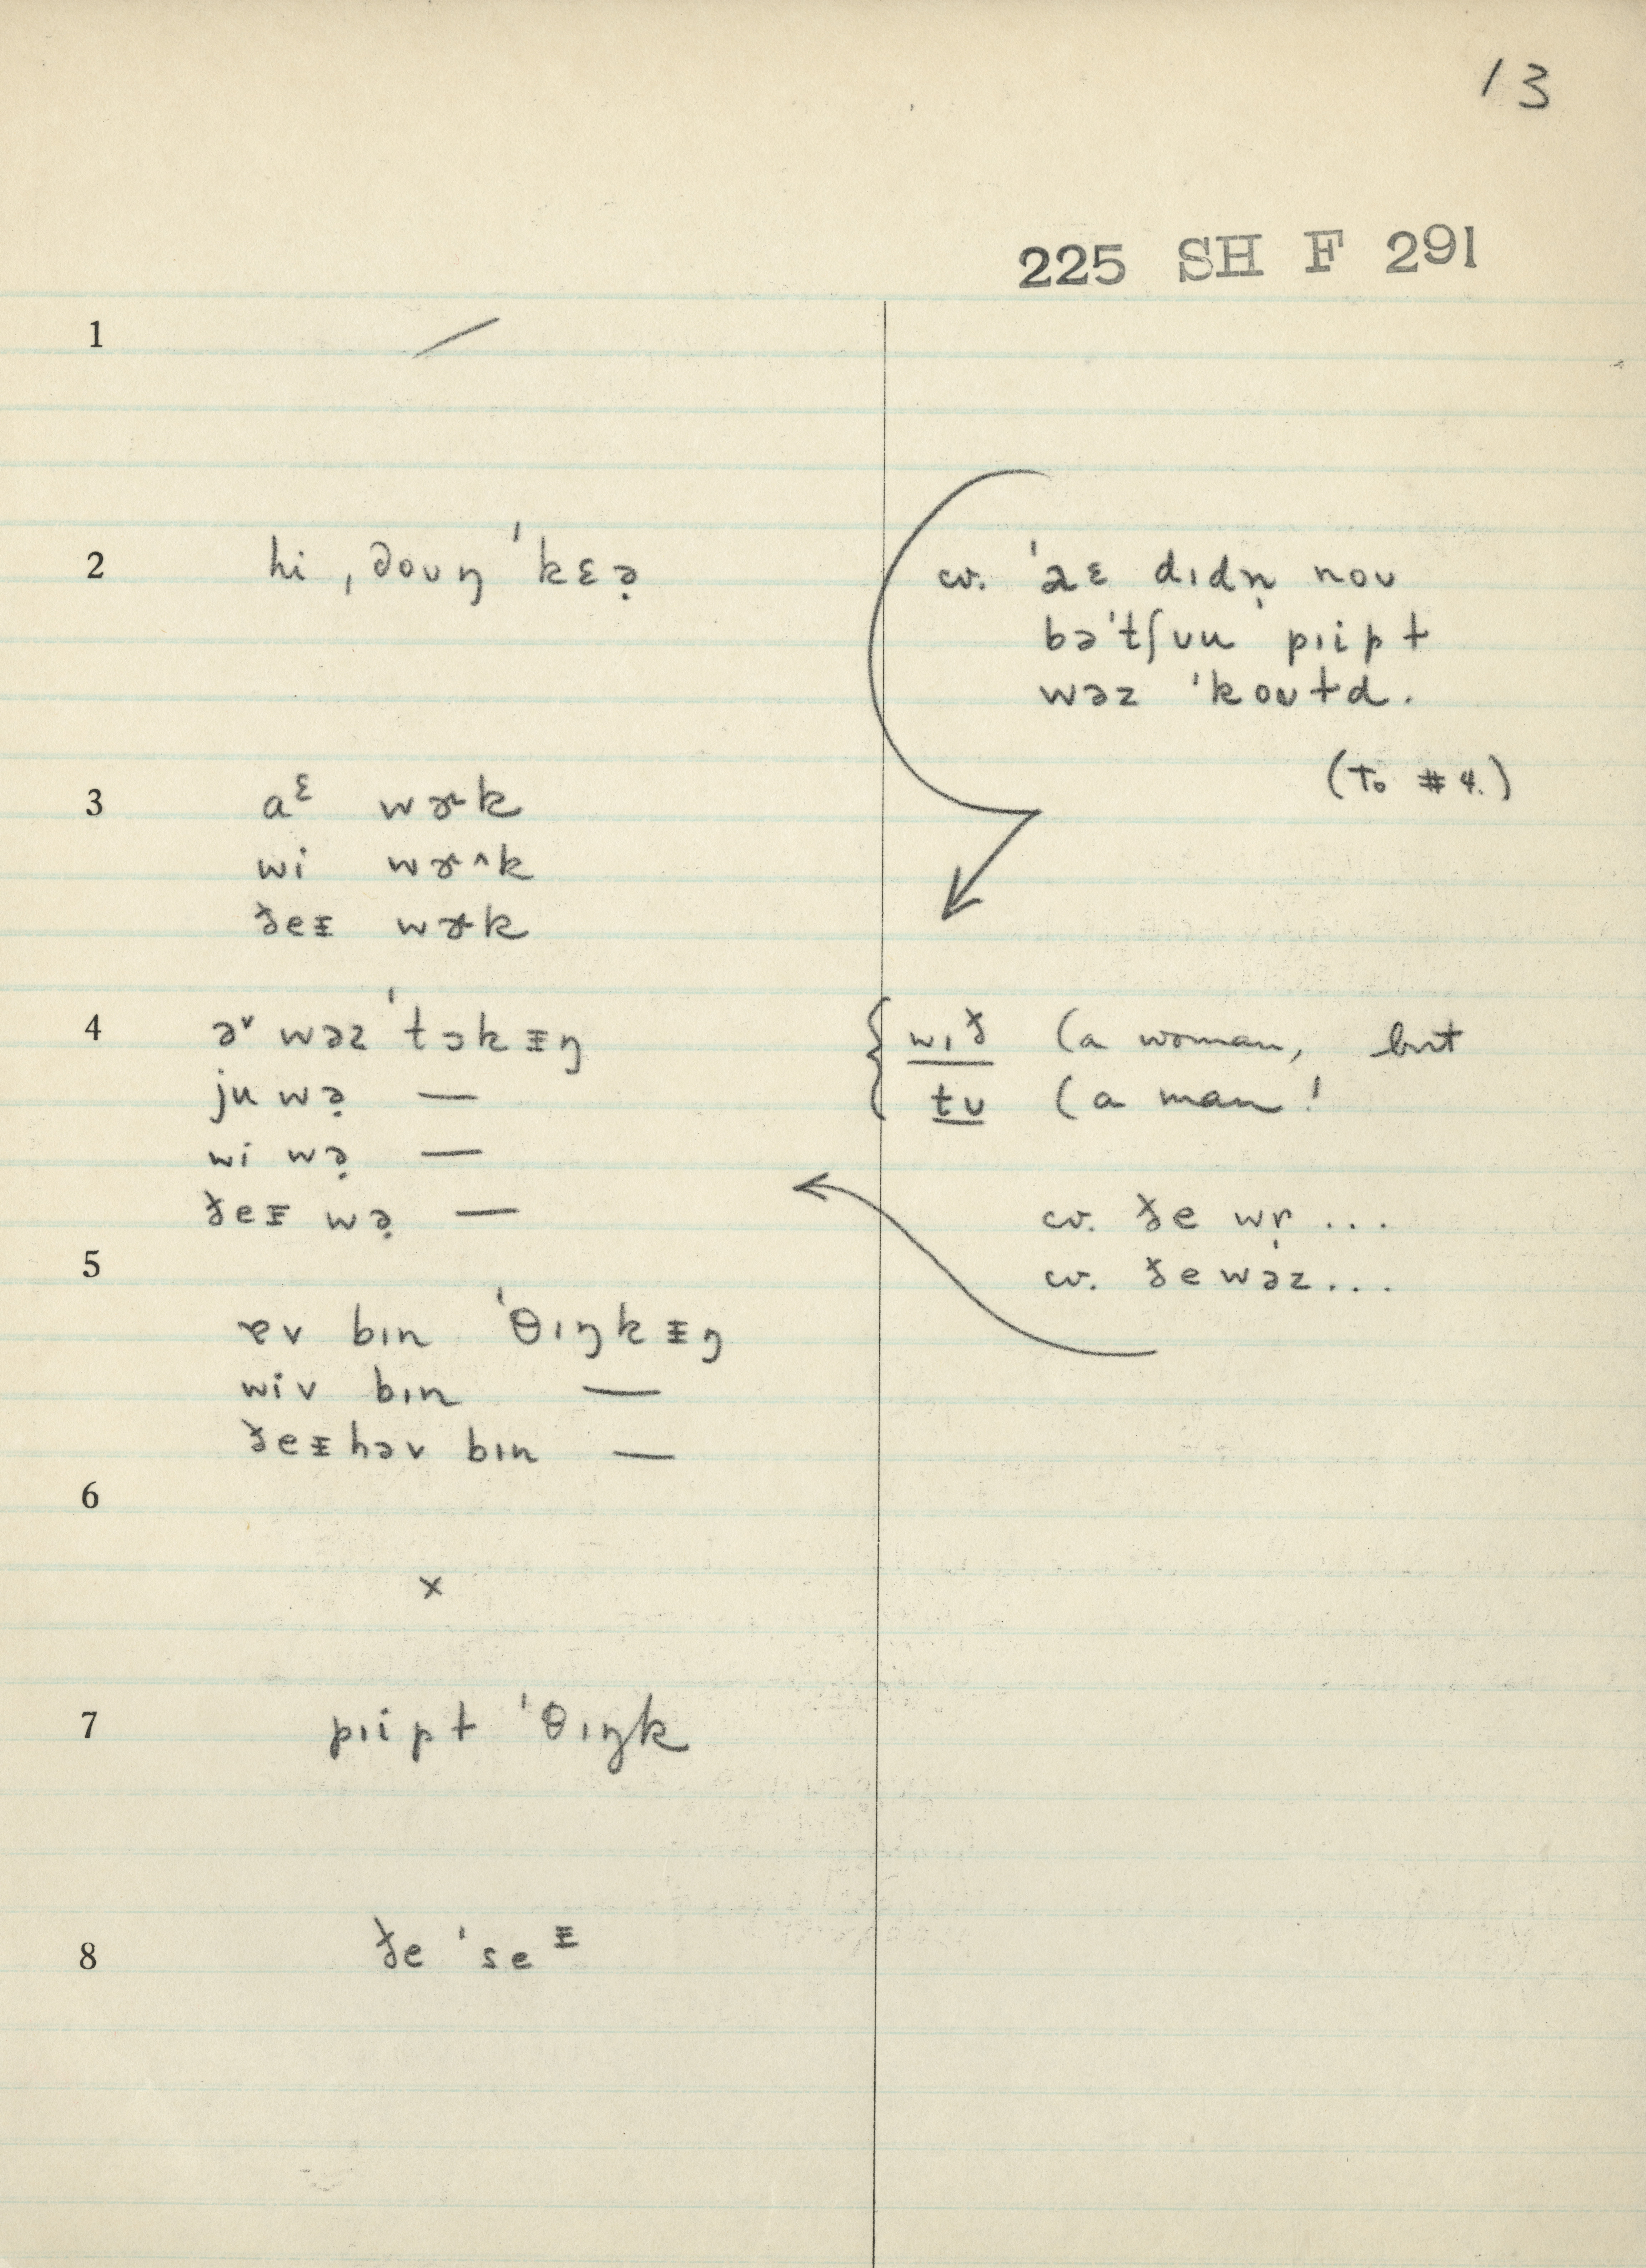 13
225 SH F 291
1
2 hi ˌdoʊŋ ˈkɛə̣
cv. ˈaɛ dɪdn̩ noʊ
bəˈtʃʊu pɪipɫ
wəz ˈkoʊɫd.
(To #4.)
3 aᵋ wɚk
wi wɚ^k
ðeᵻ wɚk
4 əᵛ wəz ˈtɔkᵻŋ
ju wə̣ —
wi wə̣ —
ðeᵻ wə̣ —
wɪð (a woman, but
tʊ (a man!
cv. ðe wr̩ ...
cv. ðe wəz...
5
ɐv bɪn ˈθɪŋkᵻŋ
wiv bɪn —
ðeᵻ həv bɪn —
6
x
7 pɪipɫ ˈθɪŋk
8 ðe ˈseᵻ